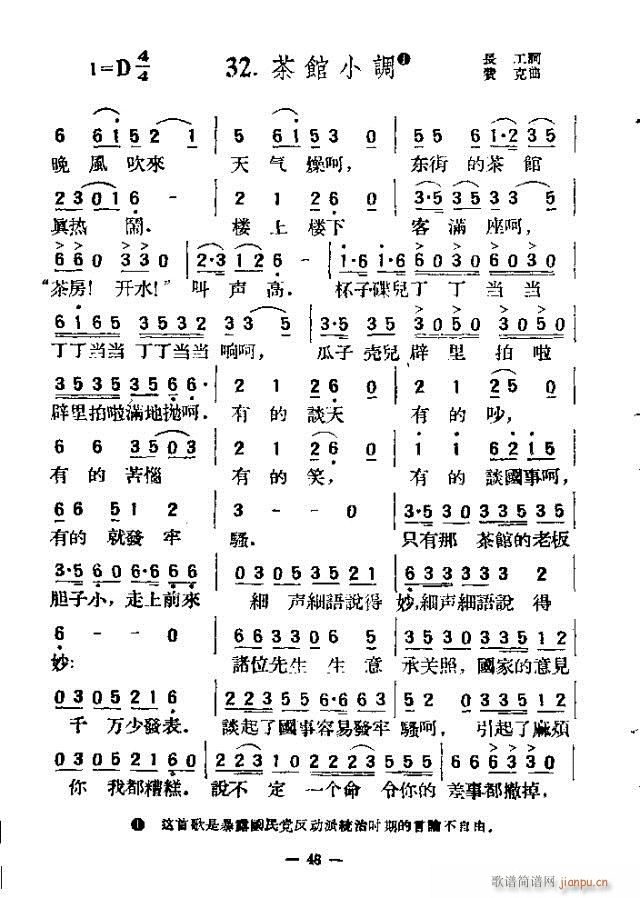 1=D 4/4 32. 茶館小調❶ 長工詞
費克曲
6 6i52 1 | 5 6i53 0 | 55 6 1·2 35
晚風吹來 天气燥呵, 东街的茶館
2301 6 - | 2 1 26 0 | 3·5 353 3 5
眞热鬧. 楼上楼下 客滿座呵,
660 330 2·3 126 - | 1·6 1·6 6030 6030
“茶房! 开水!” 叫声高. 杯子碟兒丁丁当当
6165 3532 33 5 | 3·5 35 3050 3050
丁丁当当 丁丁当当 响呵, 瓜子壳兒辟里拍啦
3535 356 6· | 2 1 26 0 | 2 1 25 0
辟里拍啦滿地抛呵. 有的談天 有的吵,
6 6 3503 | 2 1 26 0 | i i 62i5
有的苦惱 有的笑, 有的談國事呵,
66 5 1 2 | 3 - - 0 | 3·5 30 33535
有的就發牢 騷. 只有那 茶館的老板
3·56 06·66 | 03053521 | 6333333 2
胆子小, 走上前來 細声細語說得 妙,細声細語說得
6 - - 0 | 663306 5 | 3530 33535
妙: 諸位先生生意 承关照, 國家的意見
03052 16 | 22355 6·66 | 52 0 33521
千万少發表. 談起了國事容易發牢 騷呵, 引起了麻煩
030521 60 | 0223 0553 0223 | 666 6330
你我都糟糕. 說不定一个命令你的 差事都撤掉,
❶ 这首歌是暴露國民党反动派統治时期的言論不自由.
— 46 —
歌谱简谱网
jianpu.cn